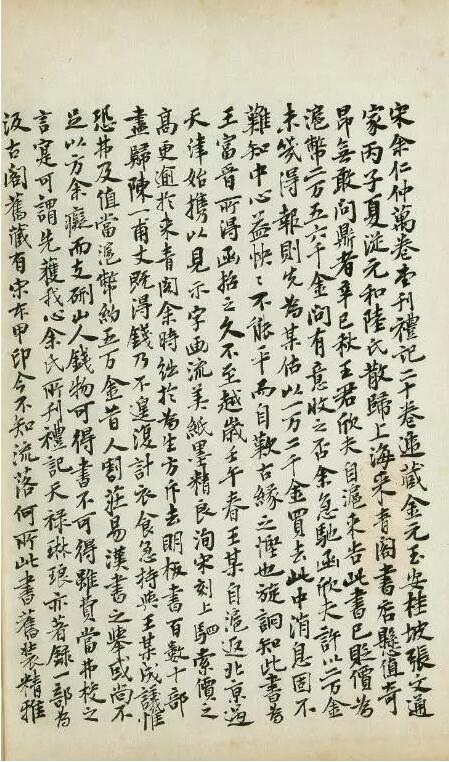 宋余仁仲萬卷堂刊禮記二十卷遞藏金元玉安桂坡張文通
家丙子夏從元和陸氏散歸上海來青閣書店懸值奇
昂無敢問鼎者辛巳秋王君欣夫自滬來告此書已貶價為
滬幣二万五六千金問有意收之否余急馳函欣夫許以二万金
未幾得報則先為某估以一万二千金買去此中消息固不
難知中心益怏〻不能平而自歎古緣之慳也旋詷知此書為
王富晉所得函招之久不至越歲壬午春王某自滬返北京過
天津始攜以見示字画流美紙墨精良洵宋刻上駟索價之
高更逾於來青閣余時絀於為生方斥去明板書百數十部
盡歸陳一甫丈既得錢乃不遑復計衣食急持與王某成議惟
恐弗及值當滬幣約五万金昔人割莊易漢書之舉或尚不
足以方余癡而支硎山人錢物可得書不可得雖費當弗校之
言寔可謂先獲我心余氏所刊禮記天祿琳琅亦著錄一部為
汲古閣舊藏有宋本甲印今不知流落何所此書舊裝精雅